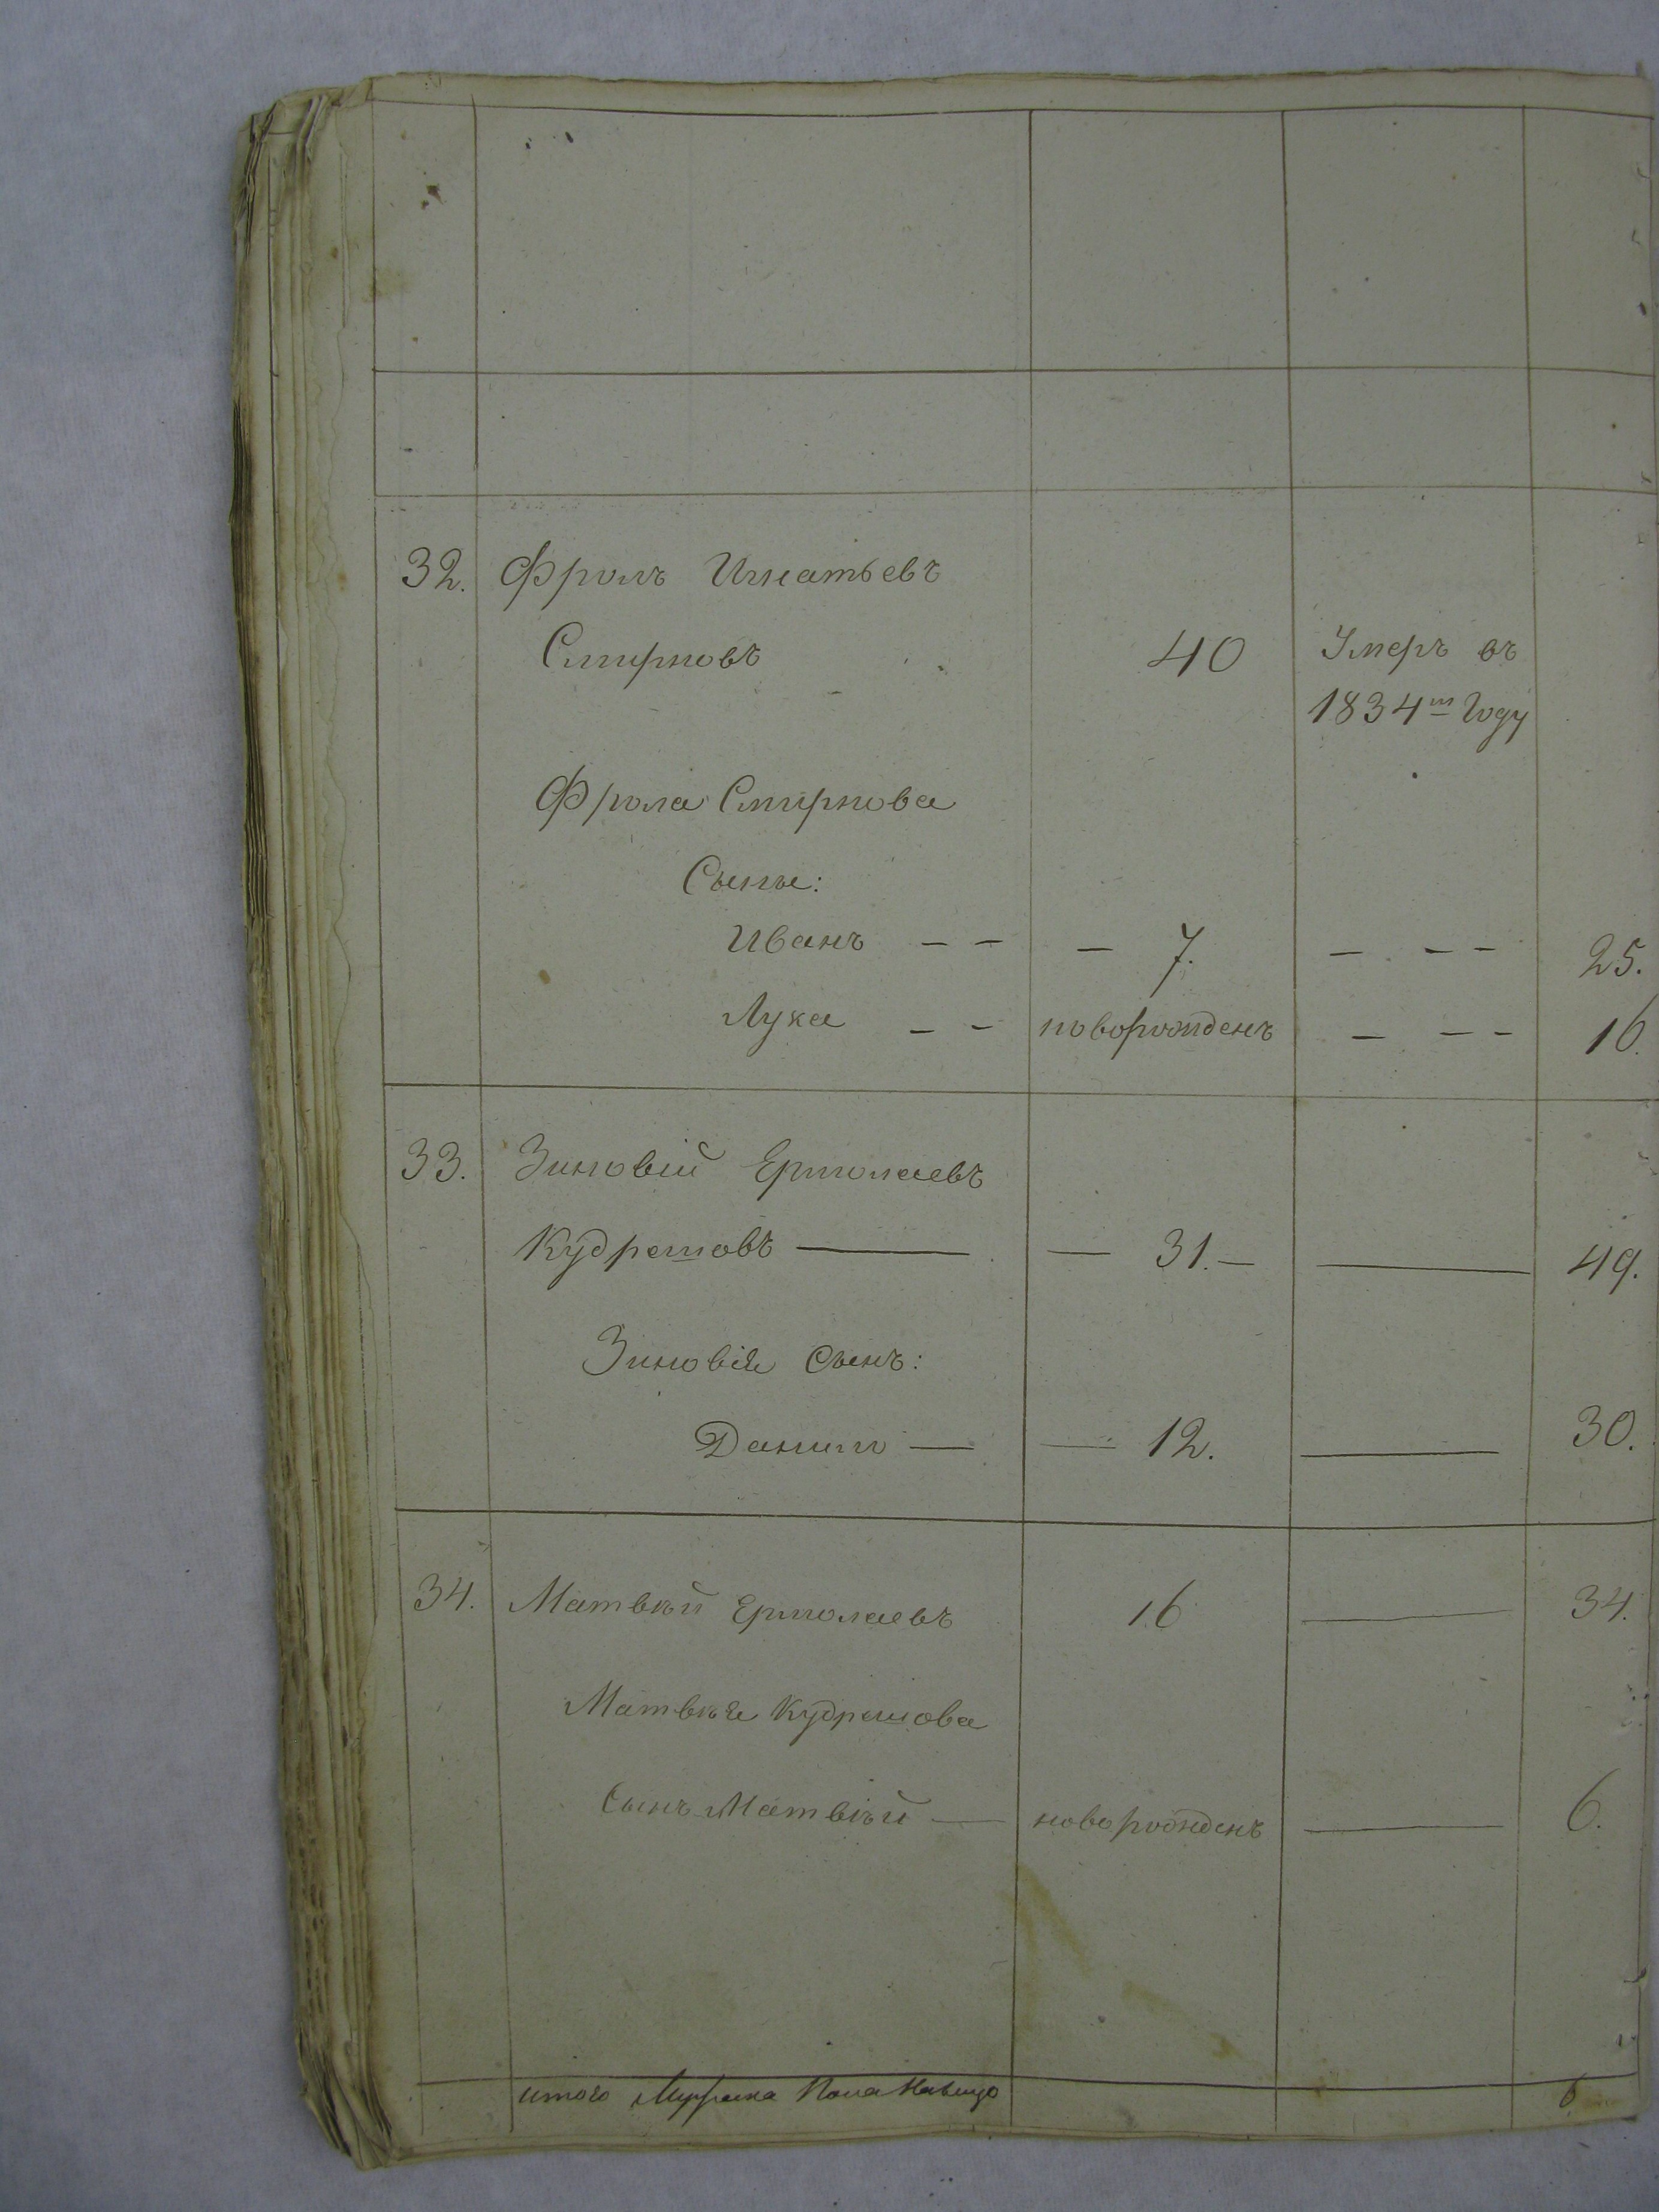 32. Фролъ Игнатьевъ
Смирновъ 40 Умеръ въ
1834м Году
Фрола Смирнова
Сынъе:
Иванъ – – – 7. – – – 25.
Лука – – новорожденъ – – – 16.
33. Зиновій Ермолаевъ
Кудрешовъ — — 31. — — 49.
Зиновія Сынъ:
Данило — — 12. — 30.
34. Матвѣй Ермолаевъ 16 — 34.
Матвѣя Кудрешова
Сынъ Матвѣй — новорожденъ — 6.
итого Мужеска Пола Налицо 6